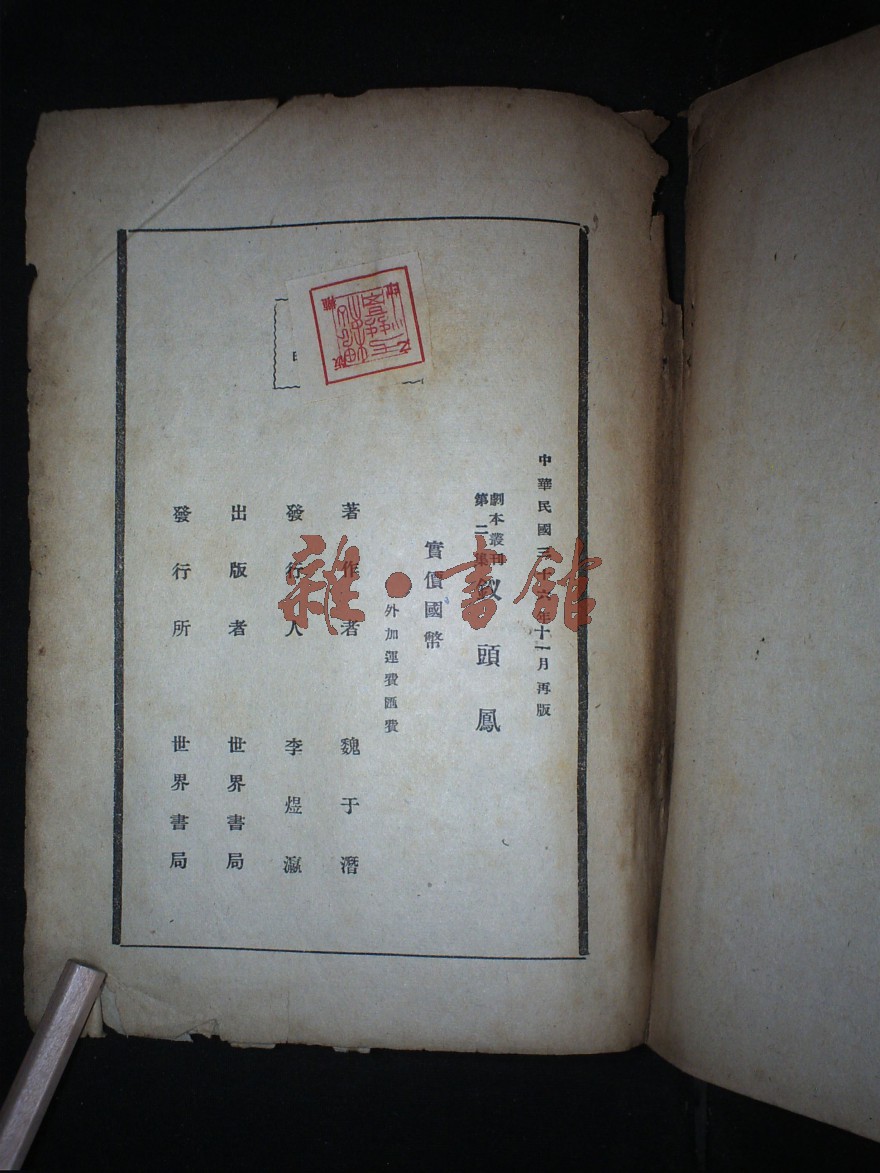 中華民國三十六年十一月再版
劇本叢刊
第二集
釵頭鳳
實價國幣
外加運費匯費
著作者 魏于潛
發行人 李煜瀛
出版者 世界書局
發行所 世界書局
雜·書館